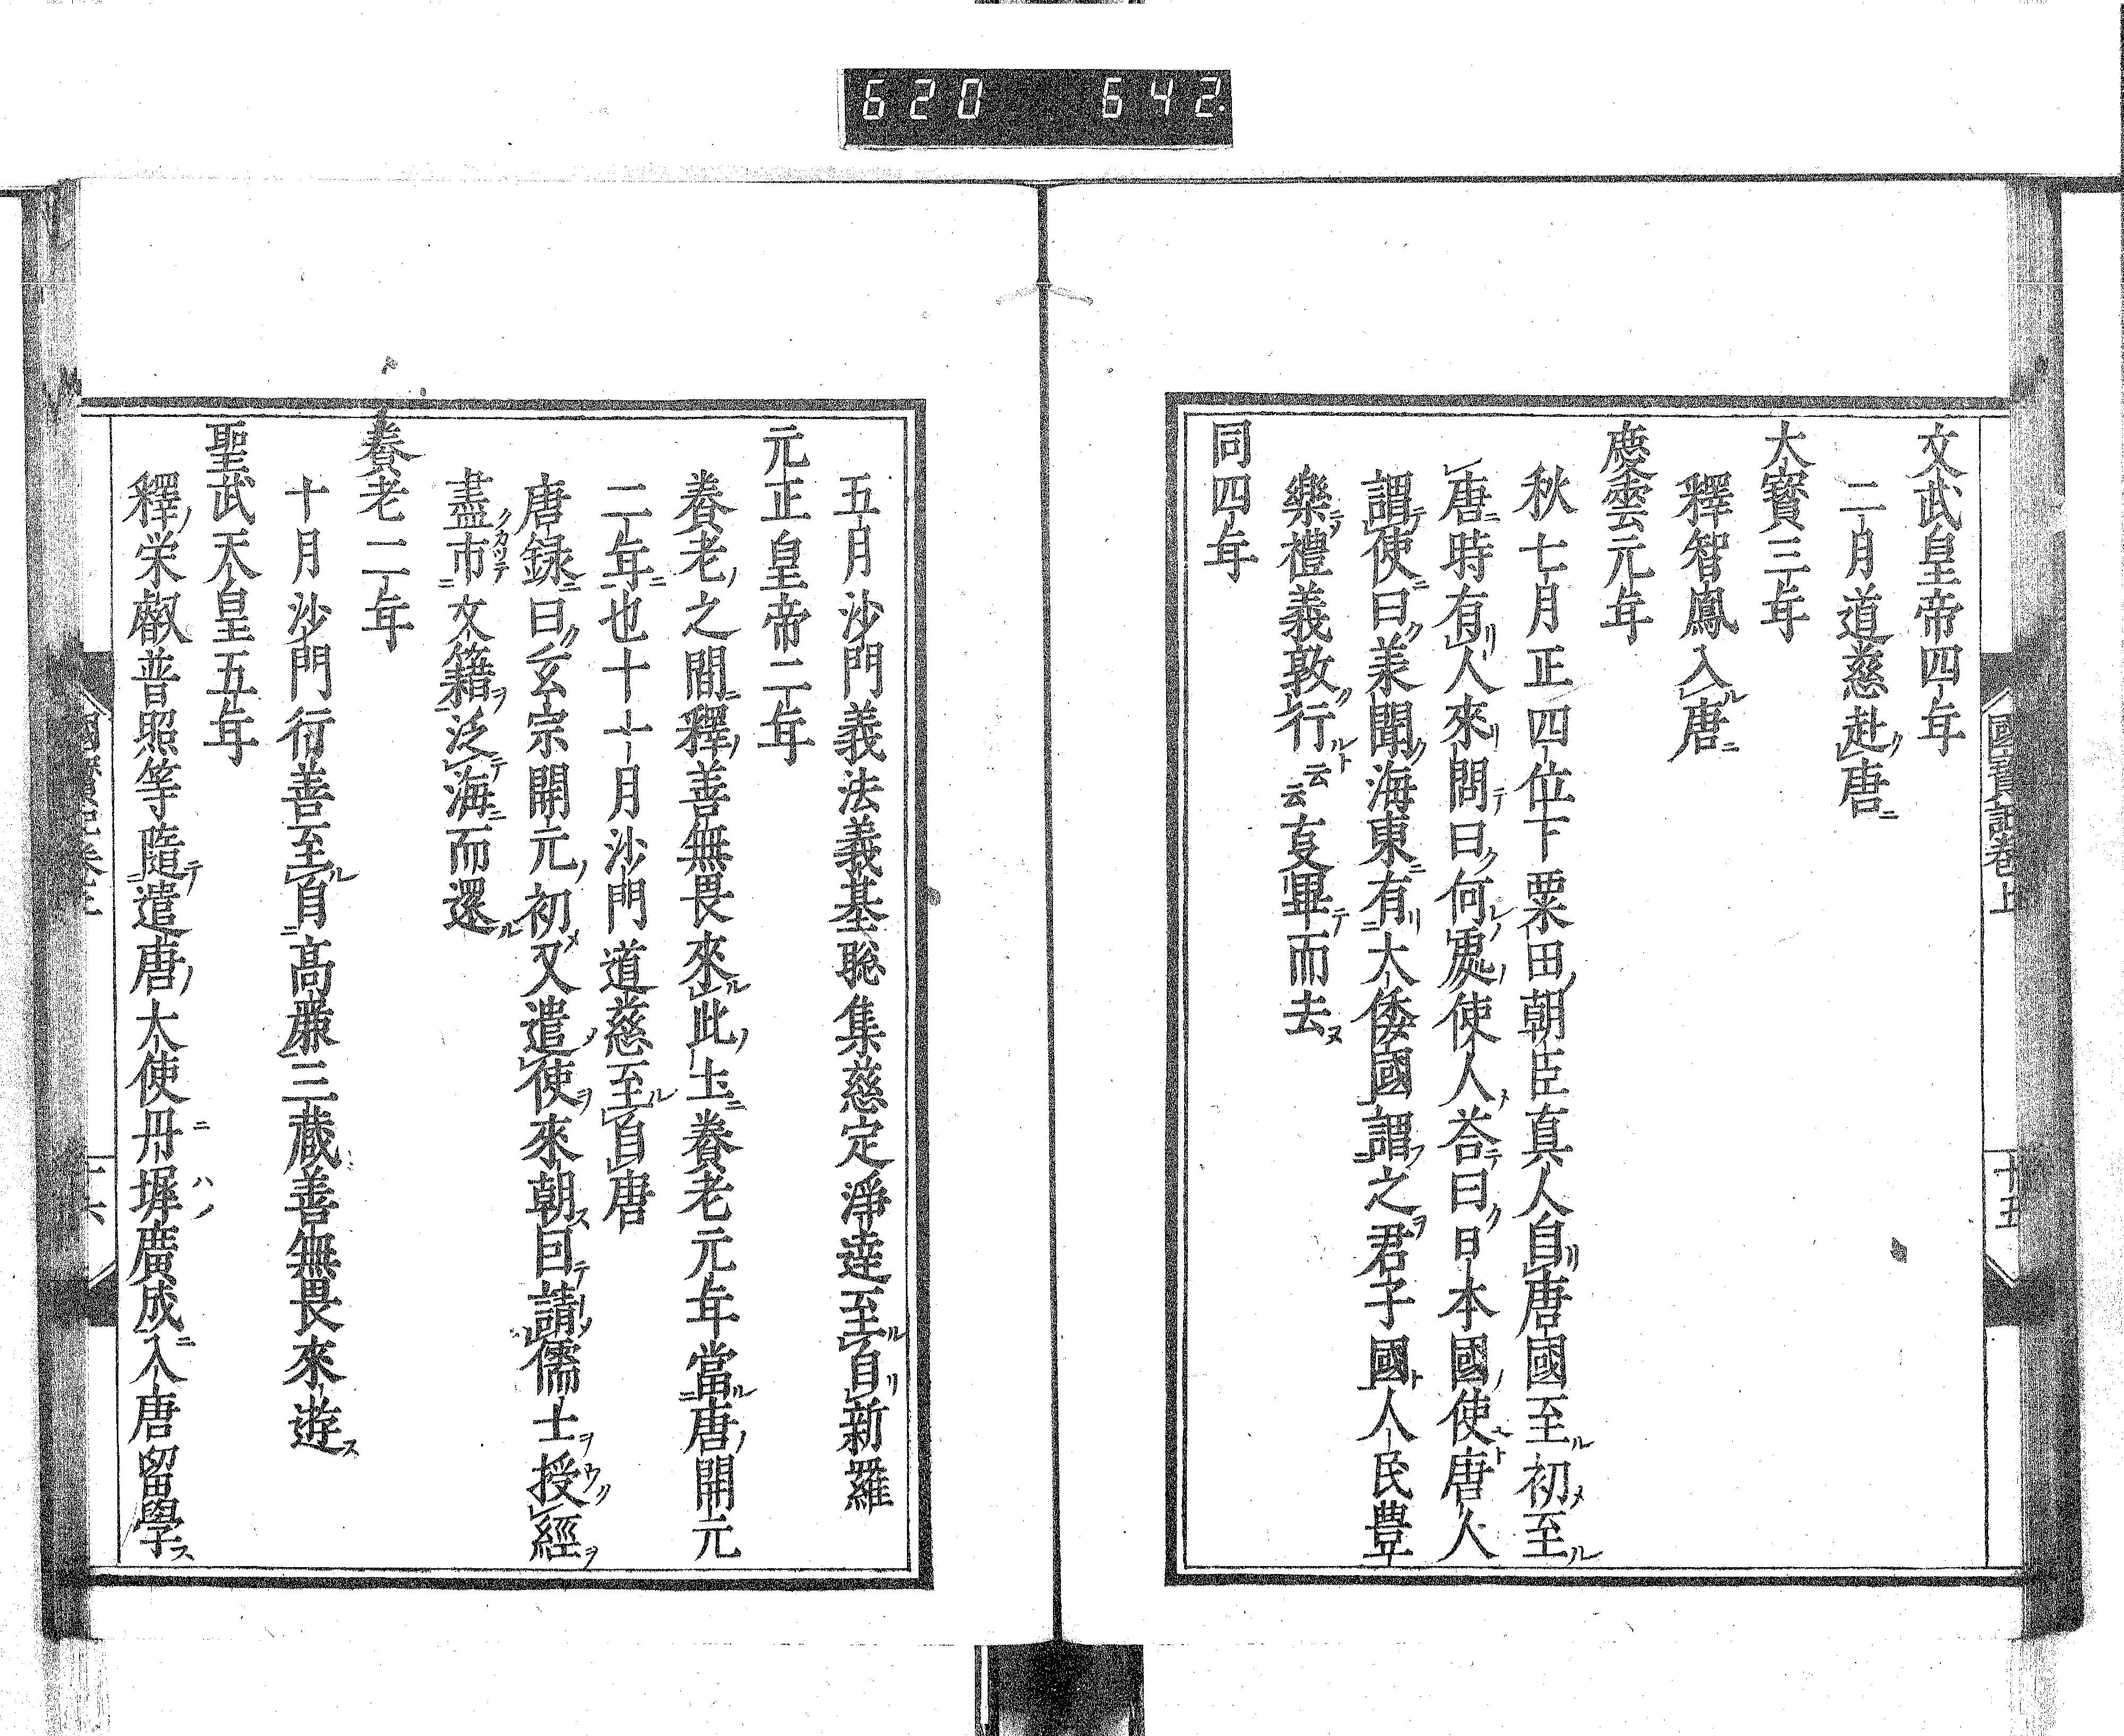 620 642.
國寶記卷上 十五
文武皇帝四年
二月道慈赴唐
大寶三年
釋智鳳入唐
慶雲元年
秋七月正四位下粟田朝臣真人自唐國至初至
唐時有人來問曰何處使人荅曰日本國使唐人
謂使曰美聞海東有大倭國謂之君子國人民豊
樂禮義敦行云云叓畢而去
同四年
五月沙門義法義基聡集慈定淨達至自新羅
元正皇帝二年
養老之間釋善無畏來此土養老元年當唐開元
二年也十十一月沙門道慈至自唐
唐録曰玄宗開元初又遣使來朝因請儒士授經
盡市文籍泛海而還
養老二年
十月沙門行善至自高麗三蔵善無畏來遊
聖武天皇五年
釋栄叡普照等隨遣唐大使丹墀廣成入唐留學